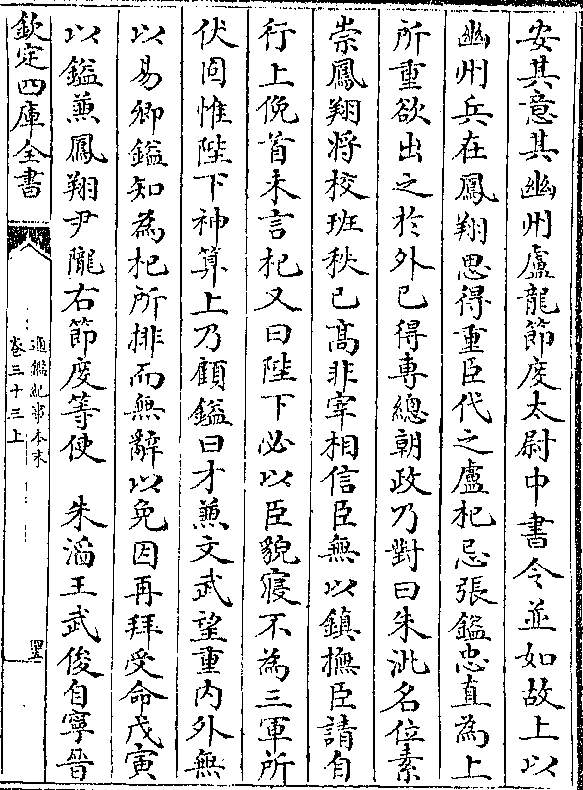 安其意其幽州盧龍節度太尉中書令並如故上以
幽州兵在鳳翔思得重臣代之盧杞忌張鎰忠直為上
所重欲出之於外已得專總朝政乃對曰朱泚名位素
崇鳳翔將校班秩已髙非宰相信臣無以鎮撫臣請自
行上俛首未言杞又曰陛下必以臣貌寢不為三軍所
伏固惟陛下神算上乃顧鎰曰才兼文武望重内外無
以易卿鎰知為杞所排而無辭以免因再拜受命戊寅
以鎰兼鳳翔尹隴右節度等使　朱滔王武俊自寧晉
欽定四庫全書
通鑑紀事本末
卷三十三上